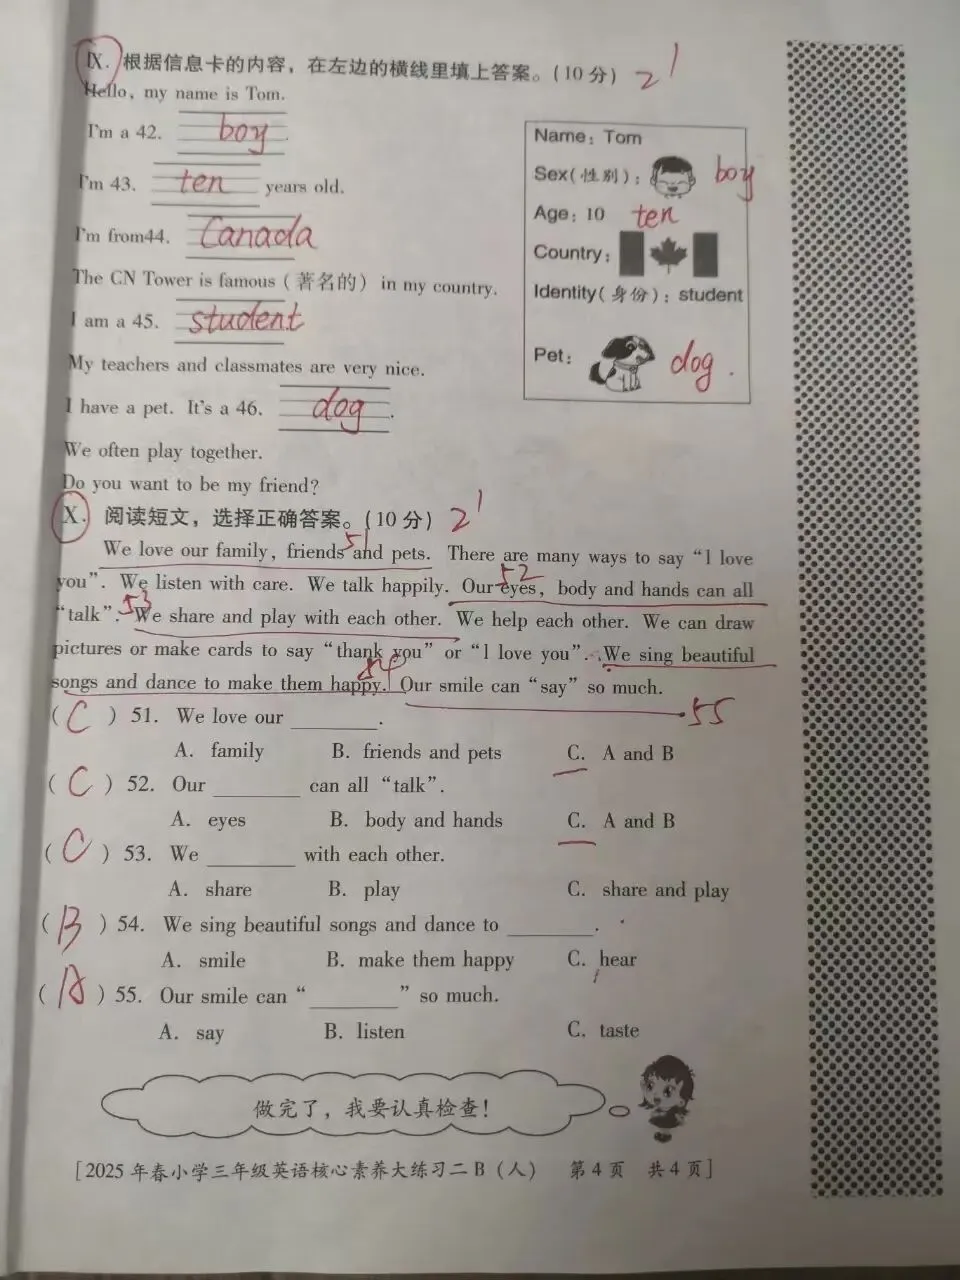 Ⅸ. 根据信息卡的内容，在左边的横线里填上答案。(10 分) 2'
Hello, my name is Tom.
I'm a 42. boy.
I'm 43. ten years old.
I'm from44. Canada
The CN Tower is famous (著名的) in my country.
I am a 45. student
My teachers and classmates are very nice.
I have a pet. It's a 46. dog.
We often play together.
Do you want to be my friend?
Name: Tom
Sex(性别): boy
Age: 10 ten
Country:
Identity(身份): student
Pet: dog.
Ⅹ. 阅读短文，选择正确答案。(10 分) 2'
51
We love our family, friends and pets. There are many ways to say “I love
52
you”. We listen with care. We talk happily. Our eyes, body and hands can all
53
“talk”. We share and play with each other. We help each other. We can draw
pictures or make cards to say “thank you” or “I love you”. We sing beautiful
54
songs and dance to make them happy. Our smile can “say” so much.
55
( C ) 51. We love our ________.
A. family B. friends and pets C. A and B
( C ) 52. Our ________ can all “talk”.
A. eyes B. body and hands C. A and B
( C ) 53. We ________ with each other.
A. share B. play C. share and play
( B ) 54. We sing beautiful songs and dance to ________.
A. smile B. make them happy C. hear
( A ) 55. Our smile can “________” so much.
A. say B. listen C. taste
做完了，我要认真检查！
[2025 年春小学三年级英语核心素养大练习二 B（人） 第 4 页 共 4 页]